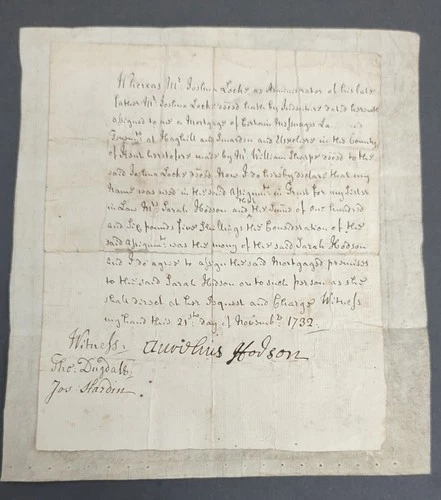 Whereas Mr. Joshua Locke as Administrator of his late
father Mr. Joshua Locke deced hath by Indenture dated herewith
assigned to me a Mortgage of Certain Messuages La
Tenemts. at and and in the County
of heretofore made by Mr. William Sharpe deced to the
said Joshua Locke deced Now I do hereby declare that my
Name was used in the said Assignmt. in Trust for my Sister
in Law Mrs. Sarah Hodson and that the Summ of One hundred
and Six pounds five Shillings the Consideration of the
said Assignmt. was the mony of the said Sarah Hodson
And I do agree to assign the said Mortgaged premises
to the said Sarah Hodson or to such person as she
shall direct at her Request and Charge Witness
my hand this 21st. day of Novembr. 1732.
Witness Aurelius Hodson
Tho. Dugdale
Jos Hardin